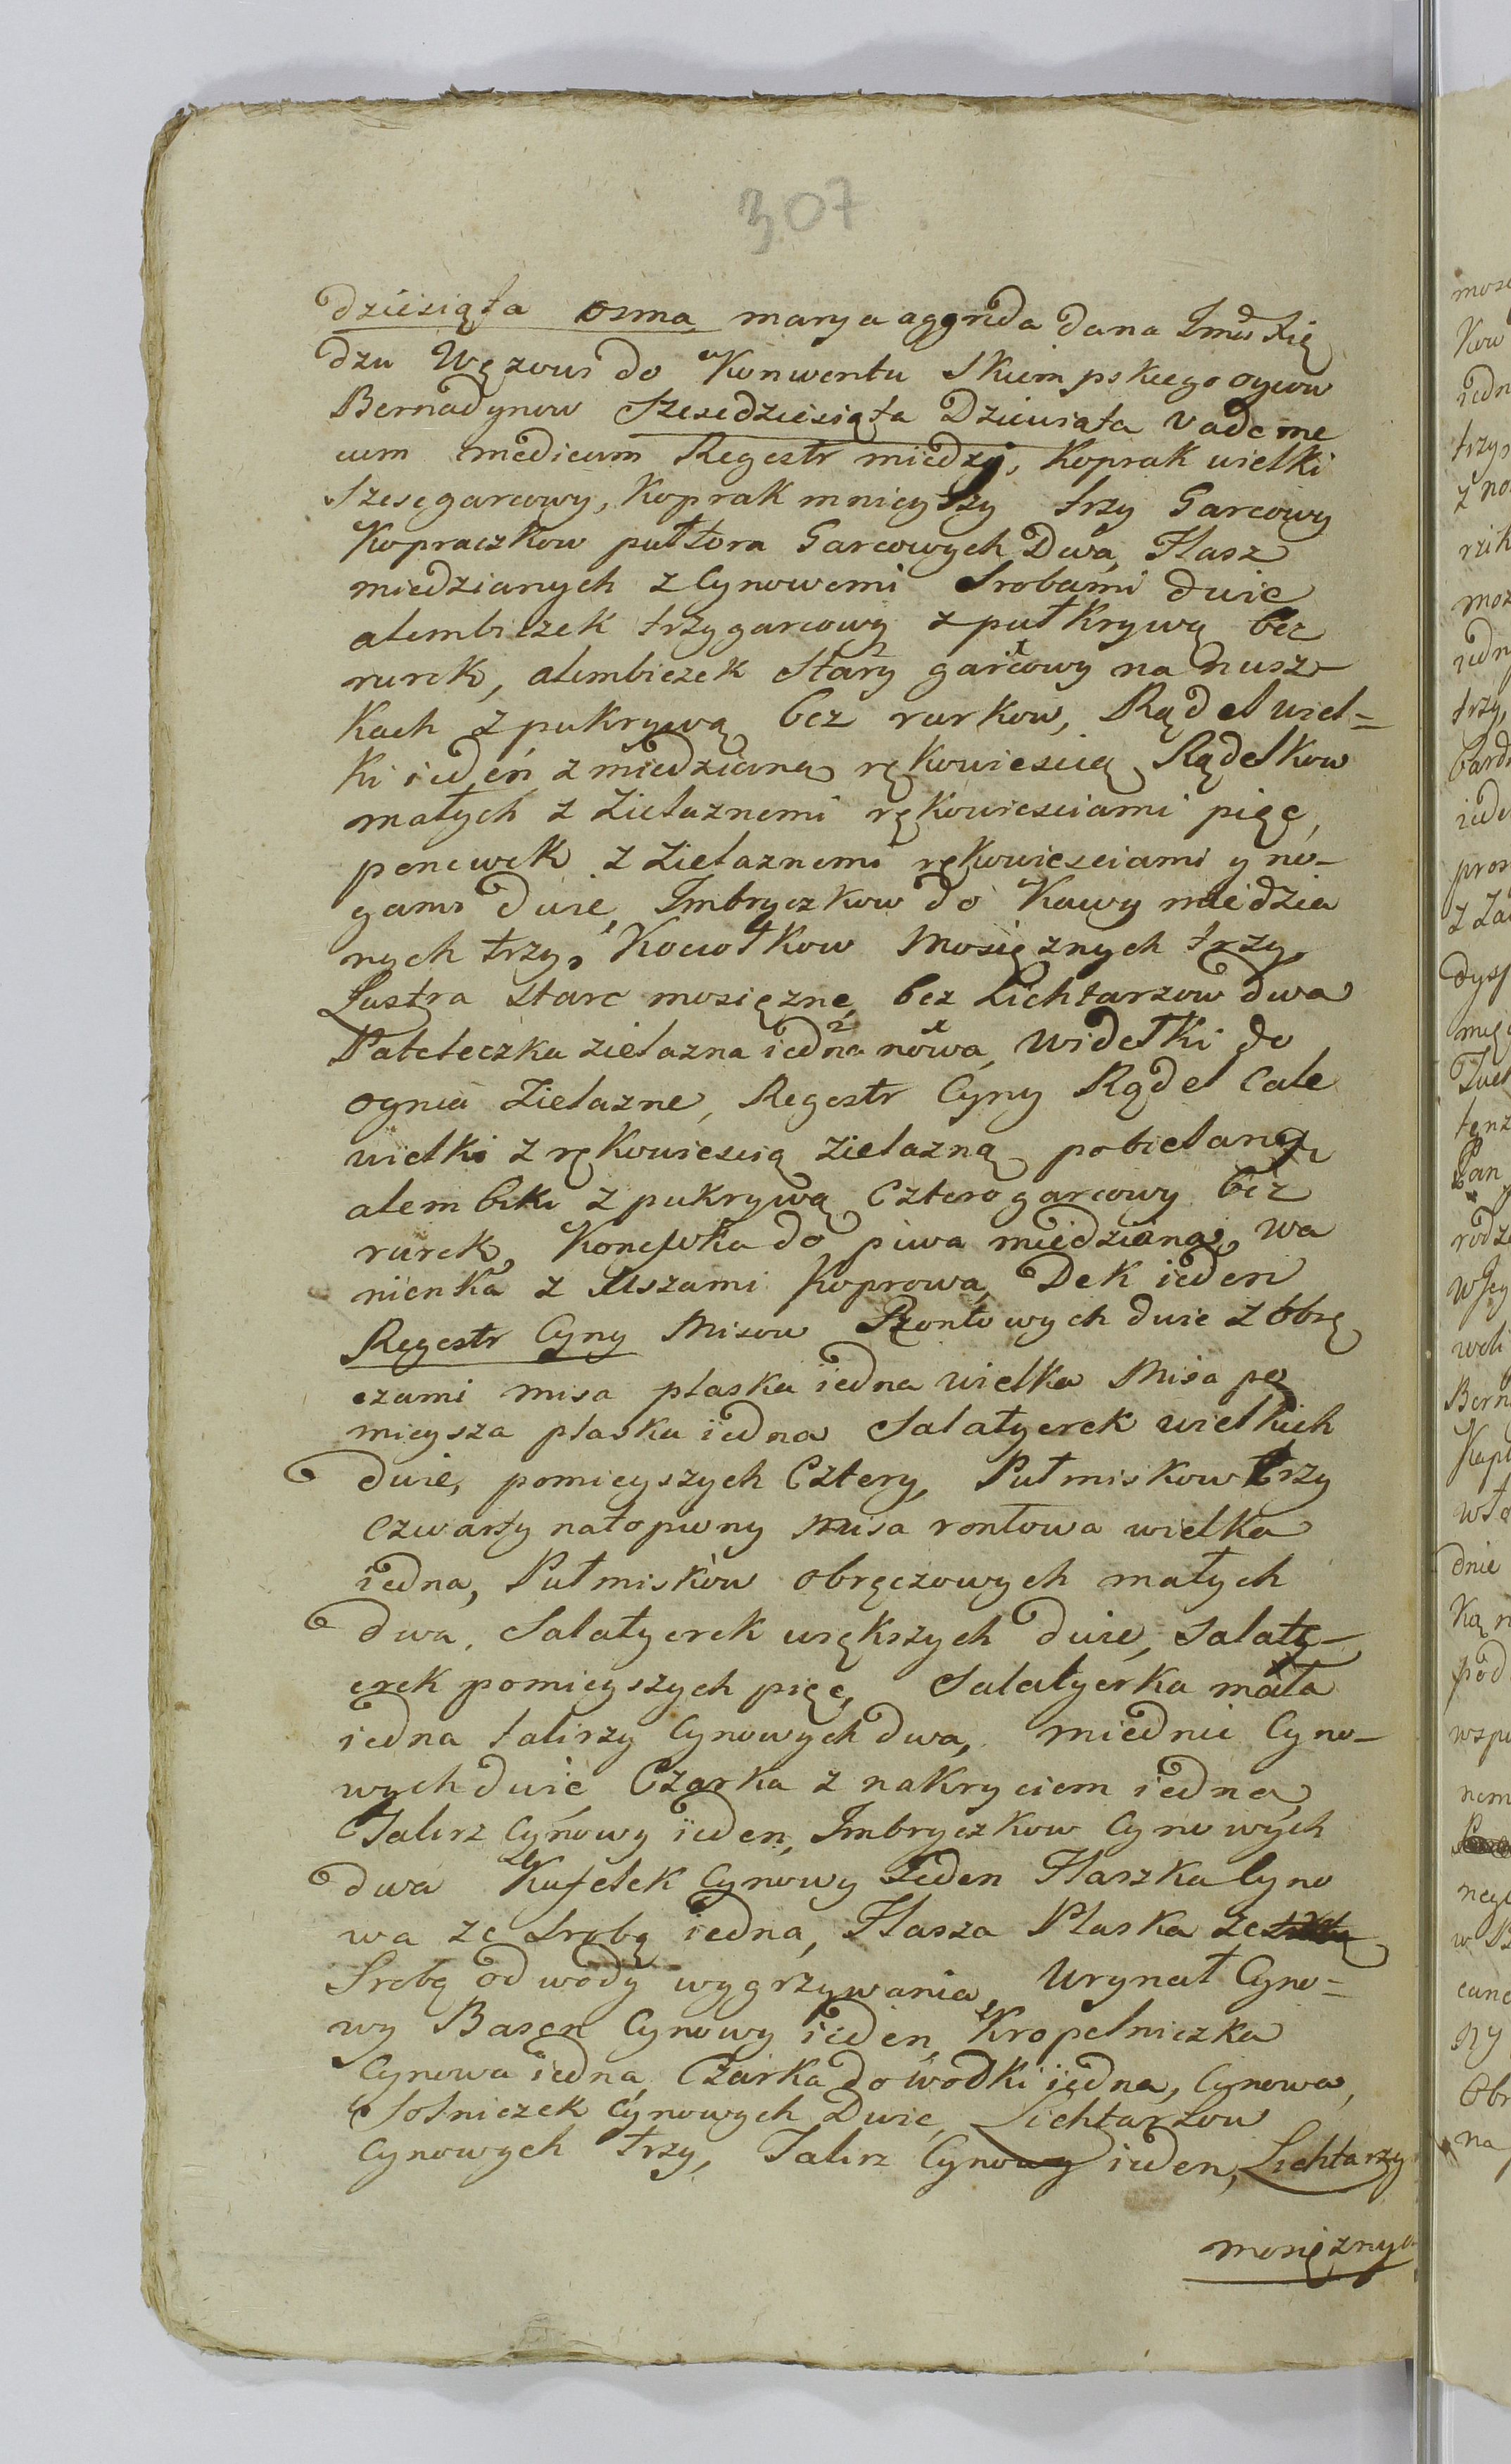 307
dziesiąta osma marya aggreda dana Imci Xię
dzu Węzowi do Konwentu Skiempskiego oycow
Bernadynow Szesedziesiąta Dziewiata Vademe
cum medicum Regestr miedzi, Koprak wielki
Szesęgarcowy, Koprak mnieyszy trzy Garcowy
Kopraczkow pułtora Garcowych Dwa, Flasz
miedzianych z Cynowemi Srobami dwie
alembiczek trzygarcowy z pułkrywą bez
rurek, alembiczek Stary garcowy na nusz-
kach z pukrywą bez rurkow, Rądel wiel=
ki ieden z miedzianą rękowiescią Rądelkow
małych z Zielaznemi rękowiesciami pięc,
penewek z zielaznemi rękowiesciami y no-
gami dwie, Imbryczkow do Kawy miedzia
nych trzy, Kociołkow Mosięznych trzy,
Lustra stare mosięzne, bez Lichtarzow dwa
Pateleczka zielazna iedna nowa, widełki do
ognia Zielazne, Regestr Cyny Rądel Cale
wielki z rękowiescią zielazną pobielany
alembik z pukrywą Czterogarcowy bez
rurek, Konewka do piwa miedziana, wa
nienka z Uszami Koprowa, Dek ieden
Regestr Cyny Misow Rontowych dwie z obrę
czami misa płaska iedna wielka Misa po
mieysza płaska iedna Salatyerek wielkich
dwie, pomieyszych Cztery, Pułmiskow trzy
Czwarty natopiony misa rontowa wielka
iedna, Pułmiskow obręczowych małych
dwa, Salatyerek większych dwie, salaty-
erek pomieyszych pięc, Salatyerka mała
iedna talirzy Cynowych dwa, miednic Cyno-
wych dwie Czarka z nakryciem iedna,
Talirz Cynowy ieden, Imbryczkow Cynowych
dwa Kufelek Cynowy Ieden Flaszka Cyno
wa ze Srobą iedna, Flasza Płaska ze
Srobą od wody wygrzywania, Urynał Cyno=
wy Basęn Cynowy ieden, Kropelniczka
Cynowa iedna, Czarka do wodki iedna, Cynowa,
Solniczek Cynowych Dwie, Lichtarzow
Cynowych trzy, Talirz Cynowy ieden, Lichtarzy
mosięznych